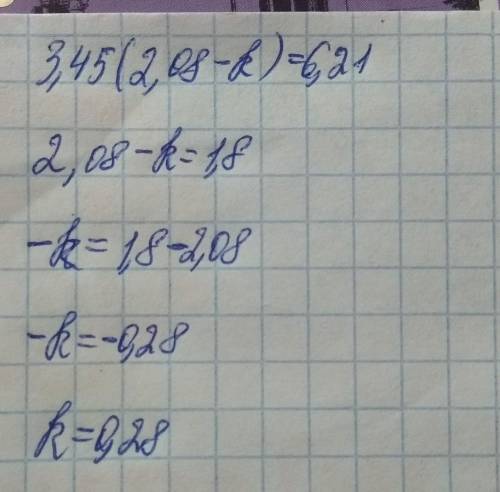 3,45(2,08-k)=6,21
2,08-k=1,8
-k=1,8-2,08
-k=-0,28
k=0,28